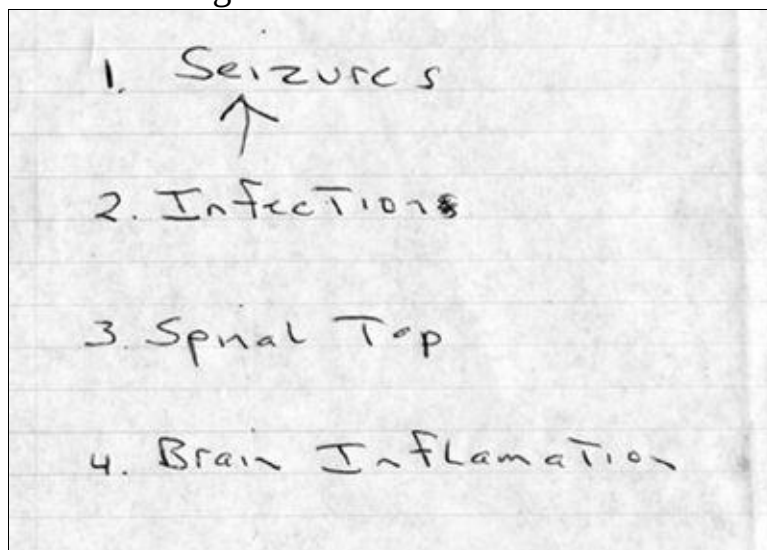 1. Seizures
2. Infections
3. Spinal Tap
4. Brain Inflamation